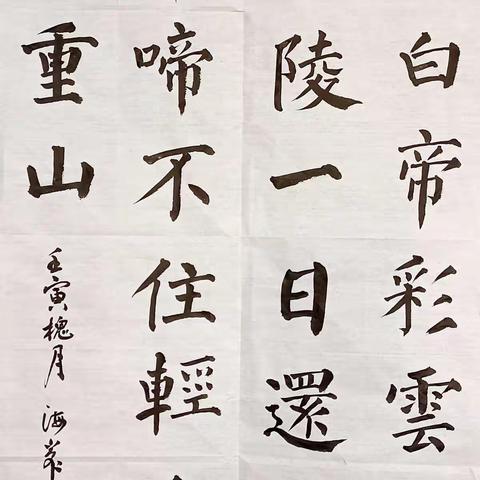 白帝彩雲
陵一日還
啼不住輕
重山
壬寅槐月 海峯